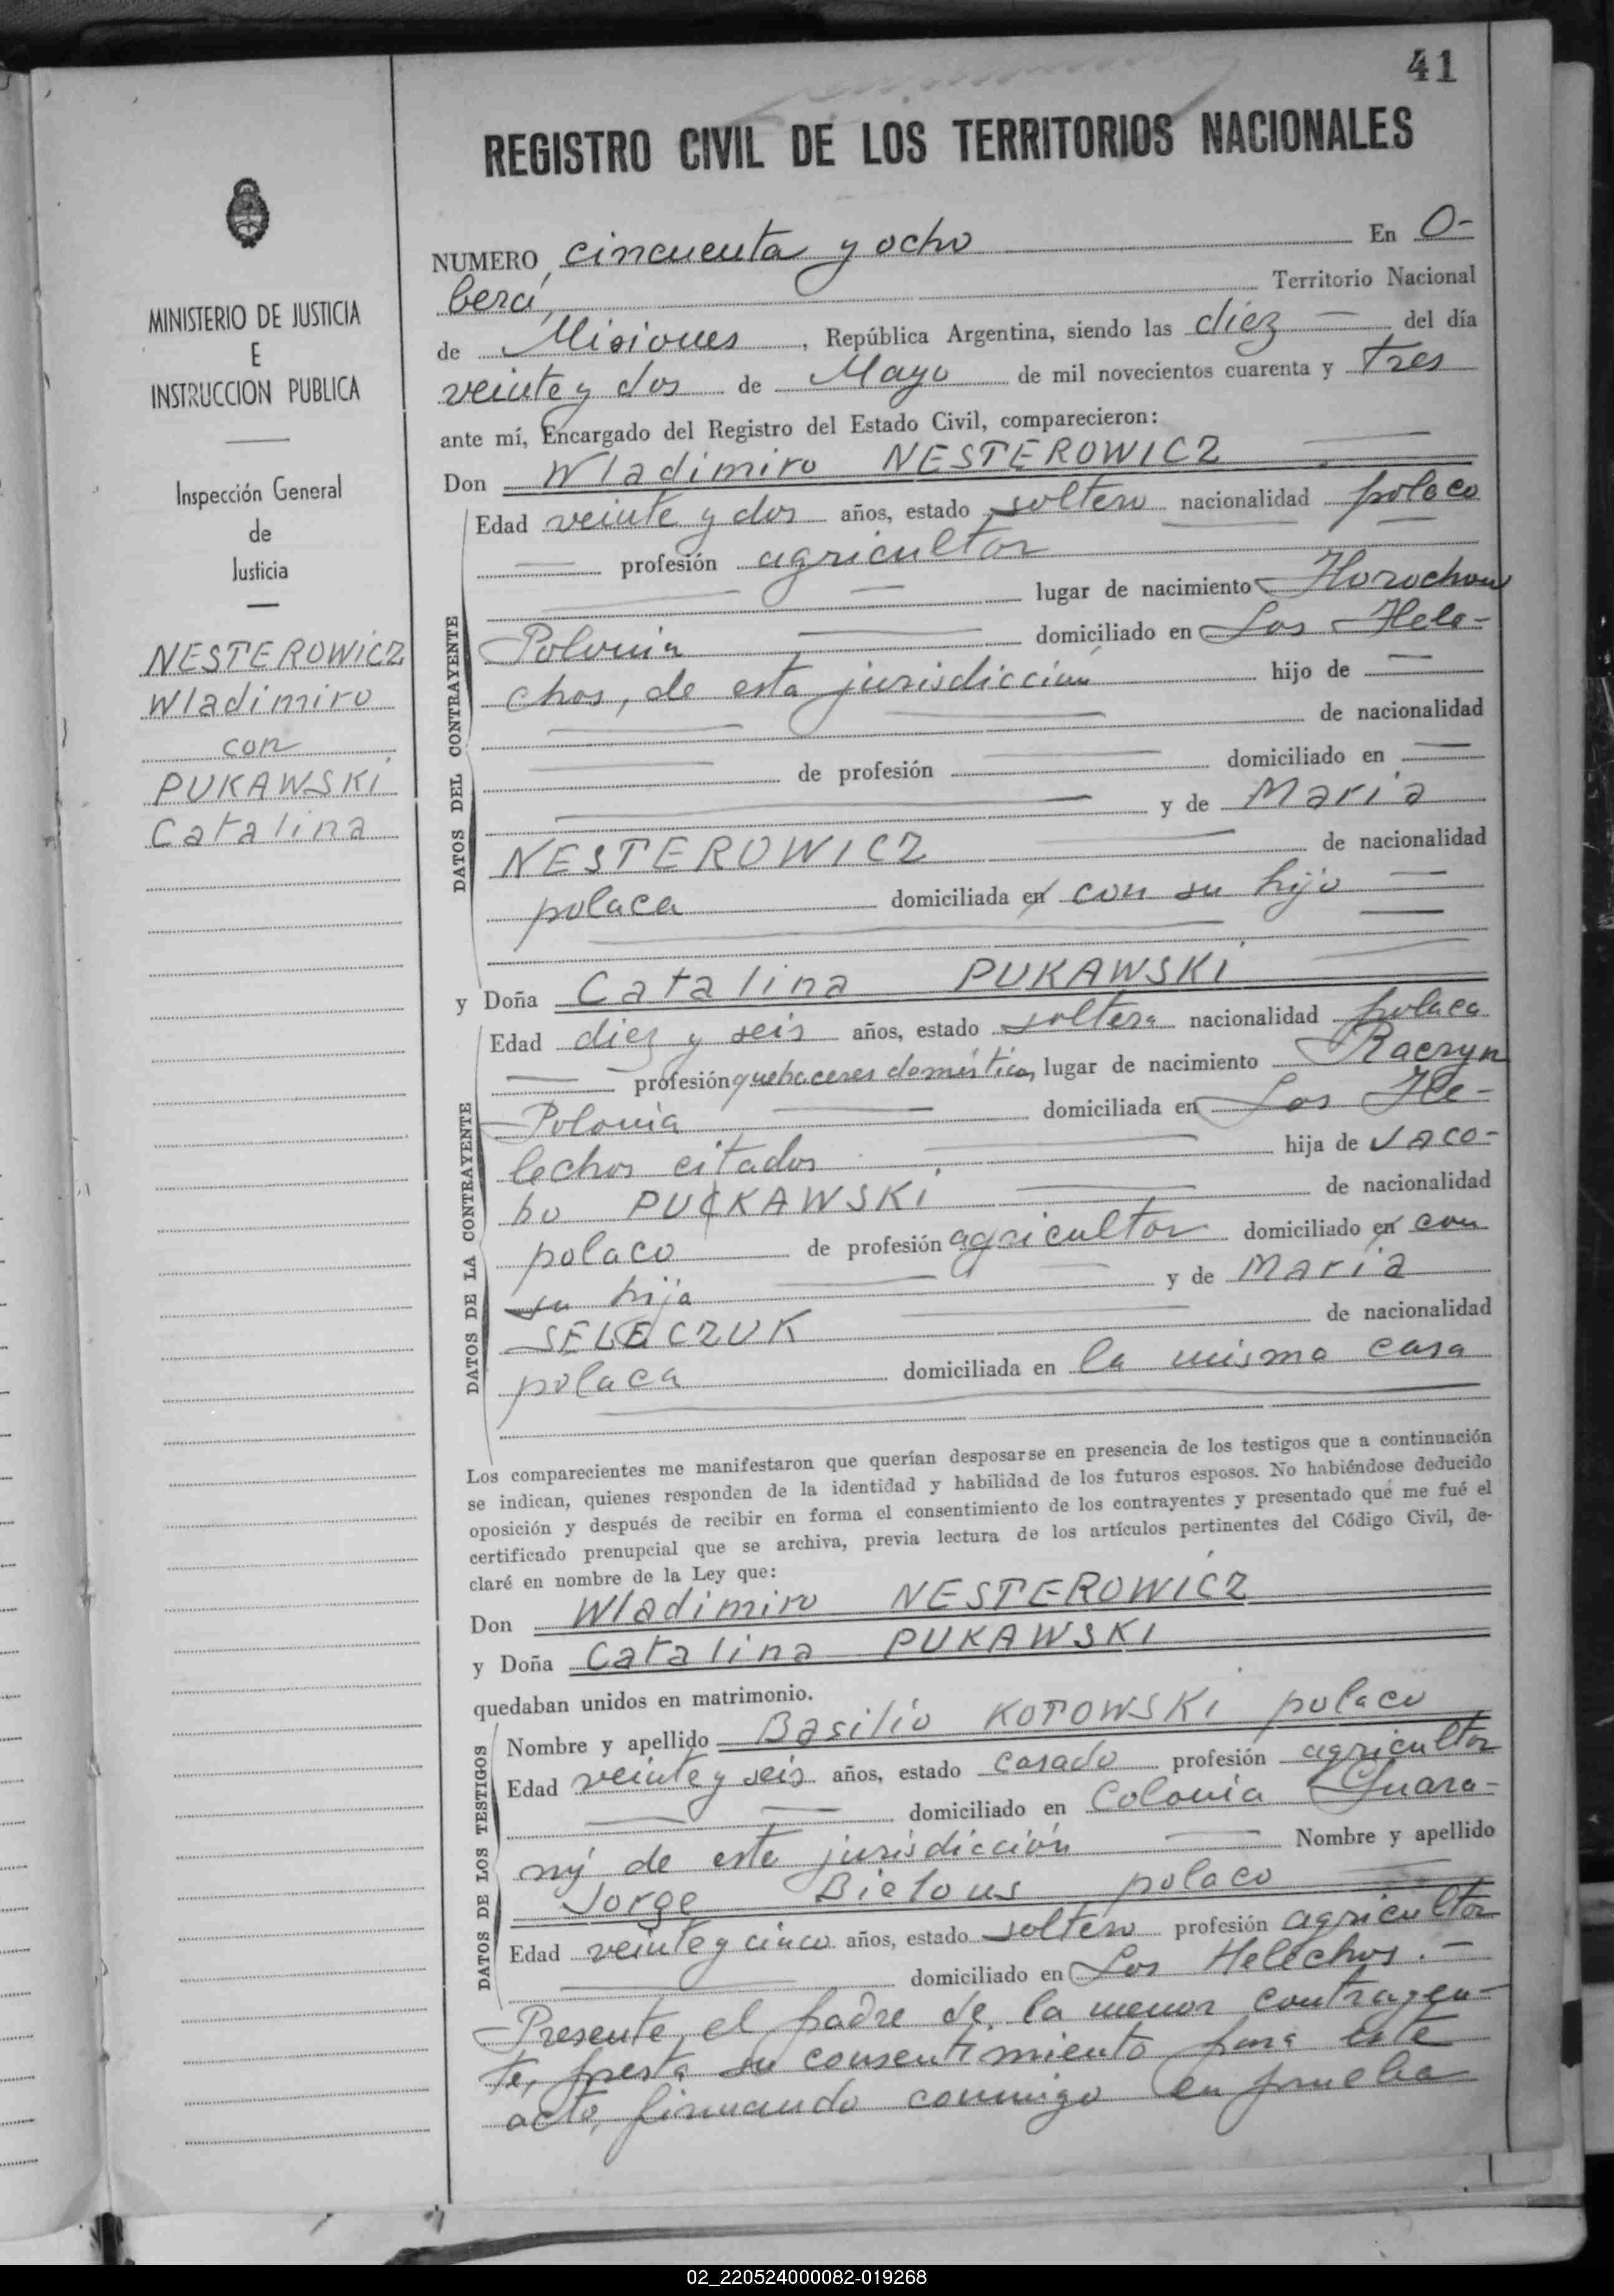 41
REGISTRO CIVIL DE LOS TERRITORIOS NACIONALES
MINISTERIO DE JUSTICIA
E
INSTRUCCION PUBLICA
Inspección General
de
Justicia
NESTEROWICZ
Wladimiro
con
PUKAWSKI
Catalina
NUMERO cincuenta y ocho En O-
berá, Territorio Nacional
de Misiones, República Argentina, siendo las diez del día
veinte y dos de Mayo de mil novecientos cuarenta y tres
ante mí, Encargado del Registro del Estado Civil, comparecieron:
Don Wladimiro NESTEROWICZ
DATOS DEL CONTRAYENTE
Edad veinte y dos años, estado soltero nacionalidad polaco
profesión agricultor
lugar de nacimiento Horochow
Polonia domiciliado en Los Hele-
chos, de esta jurisdicción hijo de
de nacionalidad
de profesión domiciliado en
y de Maria
NESTEROWICZ de nacionalidad
polaca domiciliada en con su hijo
y Doña Catalina PUKAWSKI
DATOS DE LA CONTRAYENTE
Edad diez y seis años, estado soltera nacionalidad polaca
profesión quehaceres domésticos, lugar de nacimiento Raczyn
Polonia domiciliada en Los He-
lechos citados hija de JACO-
bo PUCKAWSKI de nacionalidad
polaco de profesión agricultor domiciliado en con
su hija y de Maria
SELECZUK de nacionalidad
polaca domiciliada en la misma casa
Los comparecientes me manifestaron que querían desposarse en presencia de los testigos que a continuación
se indican, quienes responden de la identidad y habilidad de los futuros esposos. No habiéndose deducido
oposición y después de recibir en forma el consentimiento de los contrayentes y presentado qué me fué el
certificado prenupcial que se archiva, previa lectura de los artículos pertinentes del Código Civil, de-
claré en nombre de la Ley que:
Don Wladimiro NESTEROWICZ
y Doña Catalina PUKAWSKI
quedaban unidos en matrimonio.
DATOS DE LOS TESTIGOS
Nombre y apellido Basilio KOTOWSKI polaco
Edad veinte y seis años, estado casado profesión agricultor
domiciliado en Colonia Guara-
ny de esta jurisdicción Nombre y apellido
Jorge Bielous polaco
Edad veinte y cinco años, estado soltero profesión agricultor
domiciliado en Los Helechos.-
Presente, el padre de la menor contrayen-
te, presta su consentimiento para este
acto, firmando conmigo en prueba
02_220524000082-019268